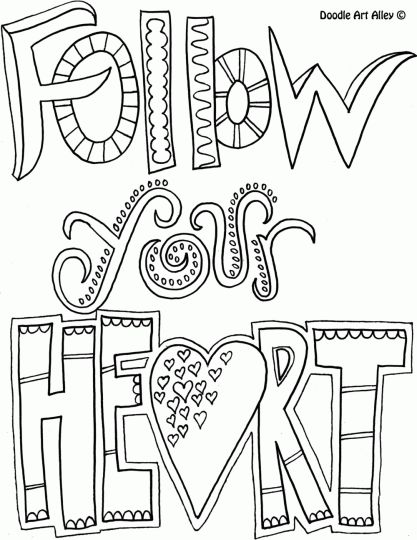 Doodle Art Alley ©
Follow
Your
HEART